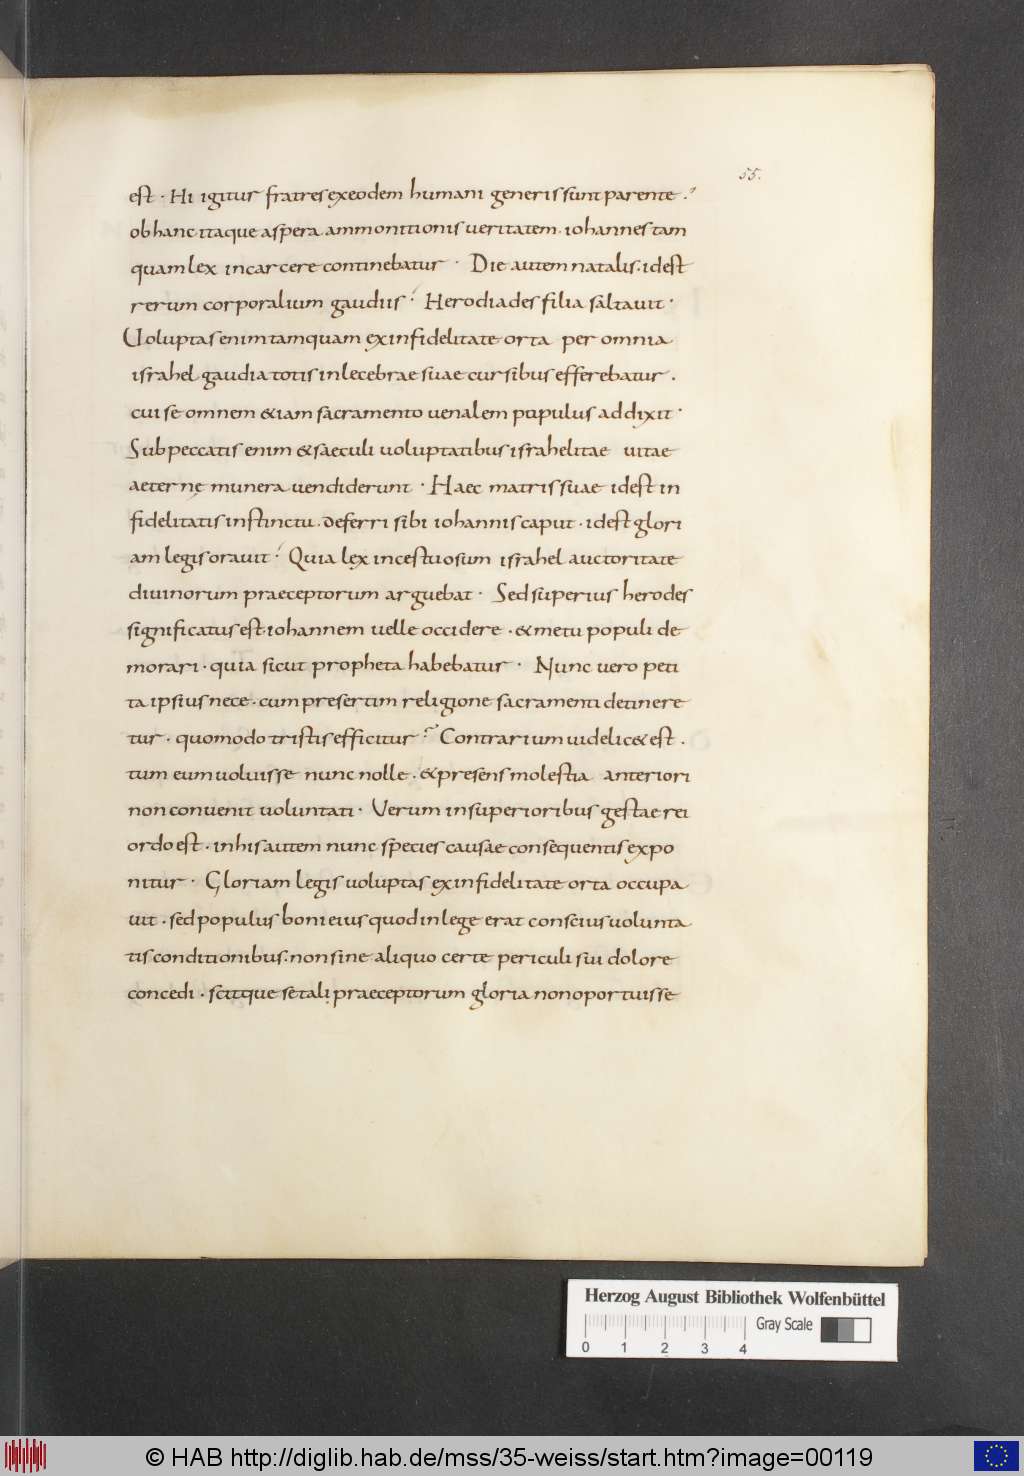 55.
est · Hi igitur fratres exeodem humani generis sunt parente ·
ob hanc itaque aspera ammonitionis ueritatem · iohannes tam
quam lex incarcere continebatur · Die autem natalis · idest
rerum corporalium gaudiis · Herodiades filia saltauit ·
Uoluptas enim tamquam exinfidelitate orta per omnia
israhel gaudia totis inlecebrae suae cursibus efferebatur .
cui se omnem &iam sacramento uenalem populus addixit ·
Sub peccatis enim & saeculi uoluptatibus israhelitae uitae
aeternę munera uendiderunt · Haec matris suae idest in
fidelitatis instinctu · deferri sibi iohannis caput · idest glori
am legis orauit · Quia lex incestuosum israhel auctoritate
diuinorum praeceptorum arguebat · Sed superius herodes
significatus est · iohannem uelle occidere · & metu populi de
morari · quia sicut propheta habebatur · Nunc uero peti
ta ipsius nece · cum presertim religione sacramenti detinere
tur · quomodo tristis efficitur · Contrarium uidelic& est .
tum eum uoluisse nunc nolle · & presens molestia anteriori
non conuenit uoluntati · Verum insuperioribus gestae rei
ordo est · inhis autem nunc species causae consequentis expo
nitur · Gloriam legis uoluptas exinfidelitate orta occupa
uit · sed populus boni eius quod inlege erat conscius uolunta
tis conditionibus · non sine aliquo certe periculi sui dolore
concedi · scitque se tali praeceptorum gloria non oportuisse
Herzog August Bibliothek Wolfenbüttel
Gray Scale
0 1 2 3 4
© HAB http://diglib.hab.de/mss/35-weiss/start.htm?image=00119